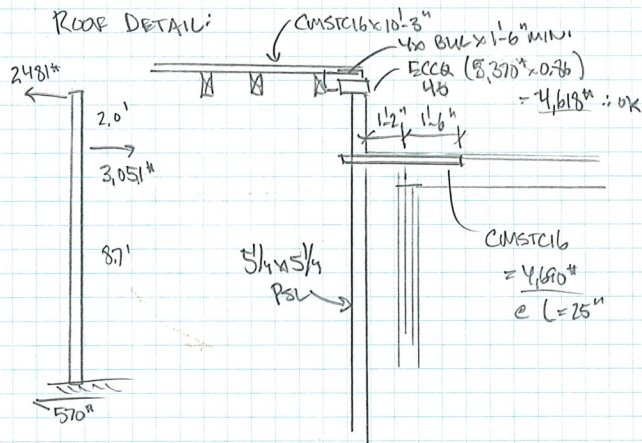 ROOF DETAIL:
CMSTC16 x 10'-3"
4x BLK x 1'-6" MIN.
ECCQ (5,370# x 0.86)
48
= 4,618# ∴ OK
2481#
2.0'
3,051#
8.7'
570#
1'-2"
1'-6"
5 1/4 x 5 1/4
PSL
CMSTC16
= 4,690#
@ L = 25"